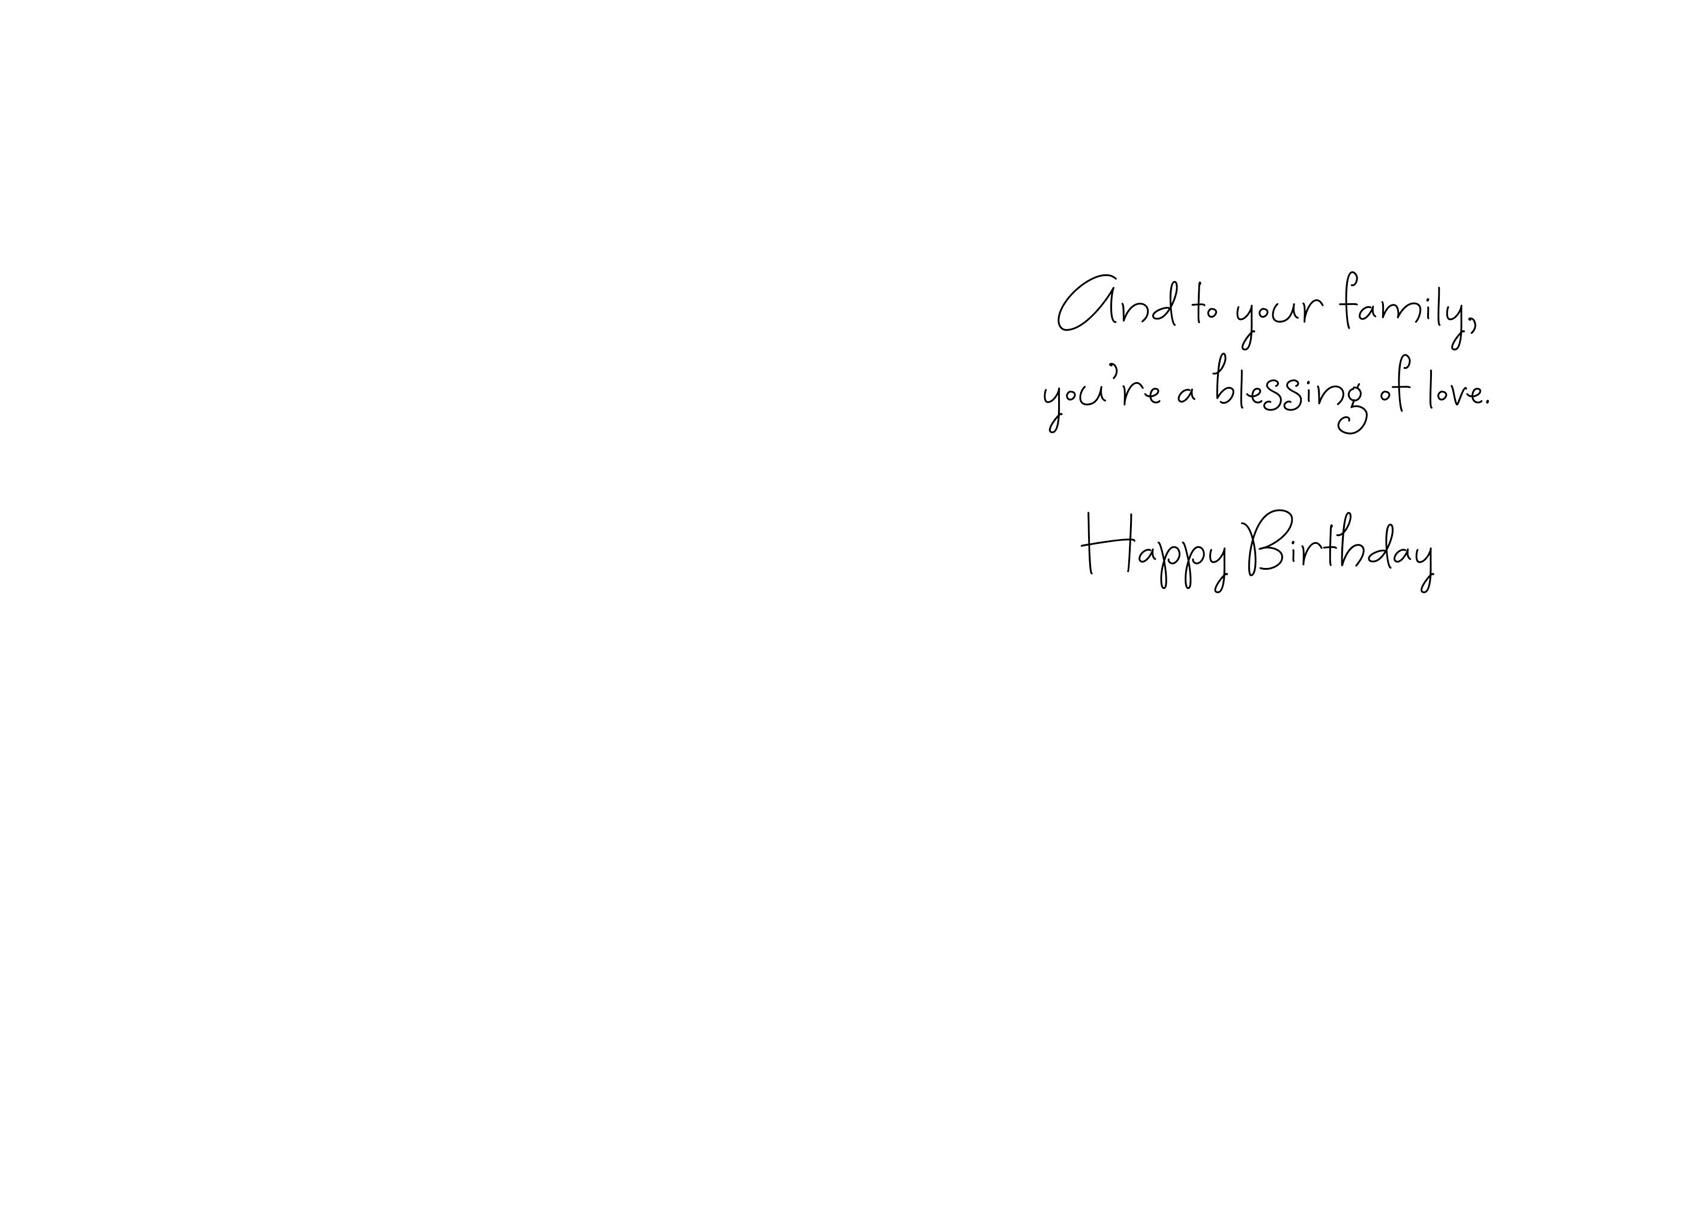 And to your family,
you're a blessing of love.
Happy Birthday